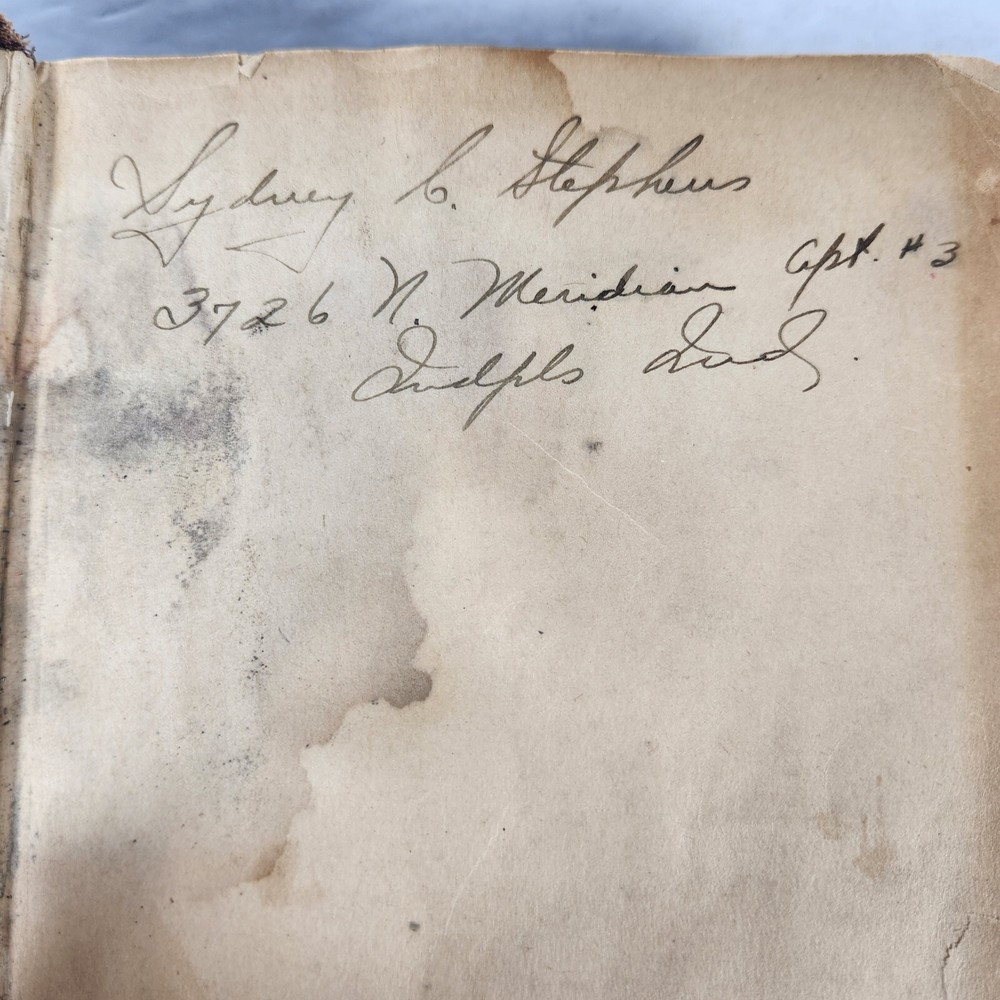 Sydney C. Stephens
3726 N. Meridian Apt. #3
Indpls Ind.